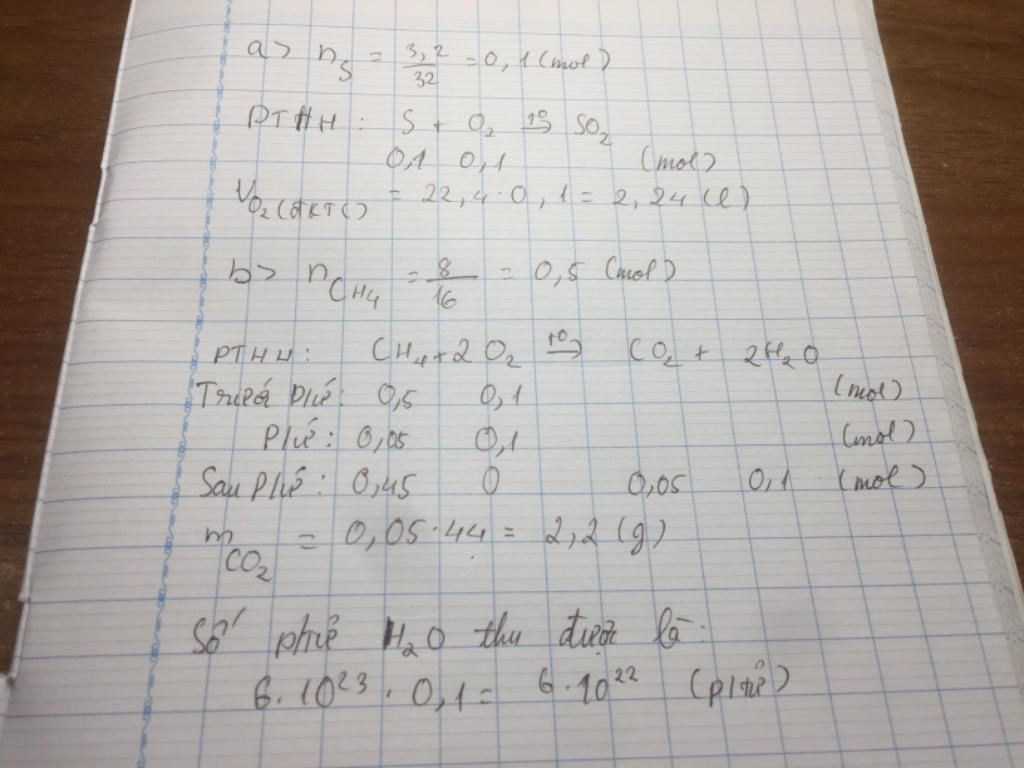 a> n_S = 3,2/32 = 0,1 (mol)
PTHH: S + O₂ t⁰→ SO₂
0,1 0,1 (mol)
V_O₂(đktc) = 22,4·0,1 = 2,24 (l)
b> n_CH₄ = 8/16 = 0,5 (mol)
PTHH: CH₄ + 2O₂ t⁰→ CO₂ + 2H₂O
Trước P/ứ: 0,5 0,1 (mol)
P/ứ: 0,05 0,1 (mol)
Sau P/ứ: 0,45 0 0,05 0,1 (mol)
m_CO₂ = 0,05·44 = 2,2 (g)
Số phtử H₂O thu được là:
6·10²³·0,1 = 6·10²² (p/tử)